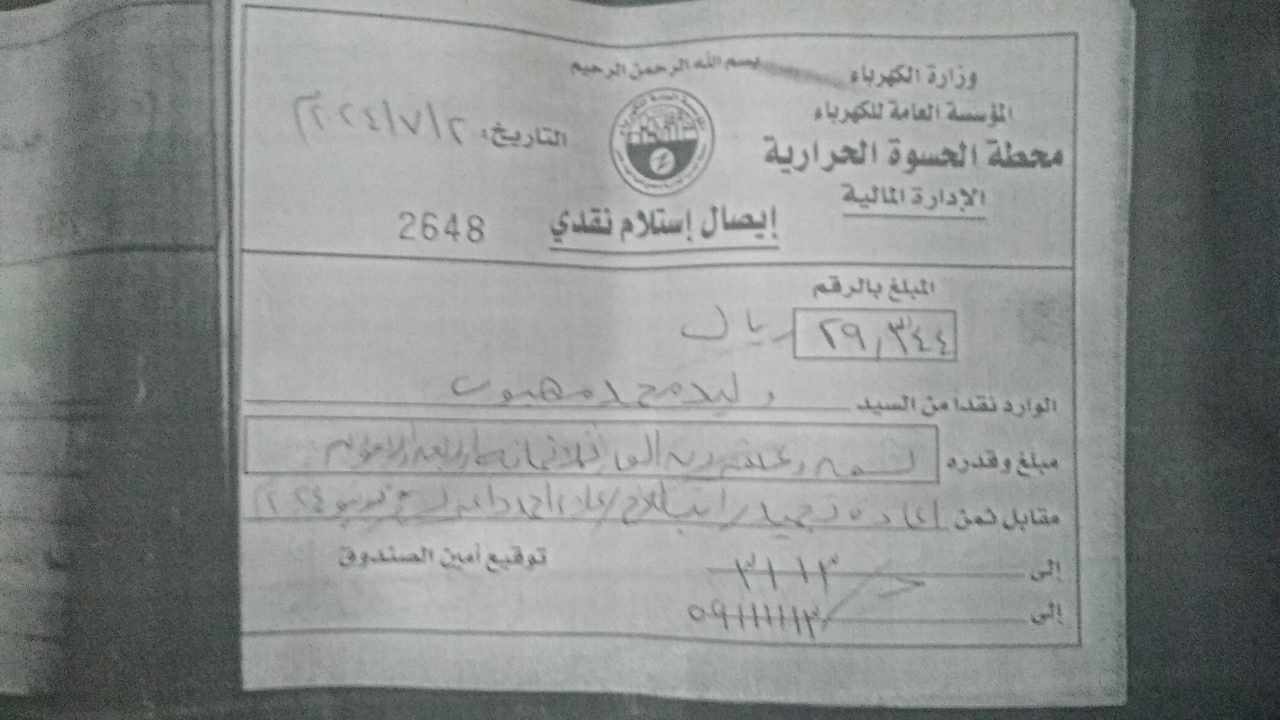 بسم الله الرحمن الرحيم
وزارة الكهرباء
المؤسسة العامة للكهرباء
محطة الحسوة الحرارية
الإدارة المالية
التاريخ: ٢/٧/٢٠٢٤م
إيصال إستلام نقدي
2648
المبلغ بالرقم
٢٩,٣٤٤ ريال
الوارد نقدا من السيد وليد محمد مهيوب
مبلغ وقدره تسعة وعشرون الف وثلاثمائة واربعة واربعون
مقابل ثمن اعادة راتب احمد يونيو ٢٠٢٤م
إلى ٣١١٣
توقيع أمين الصندوق
إلى